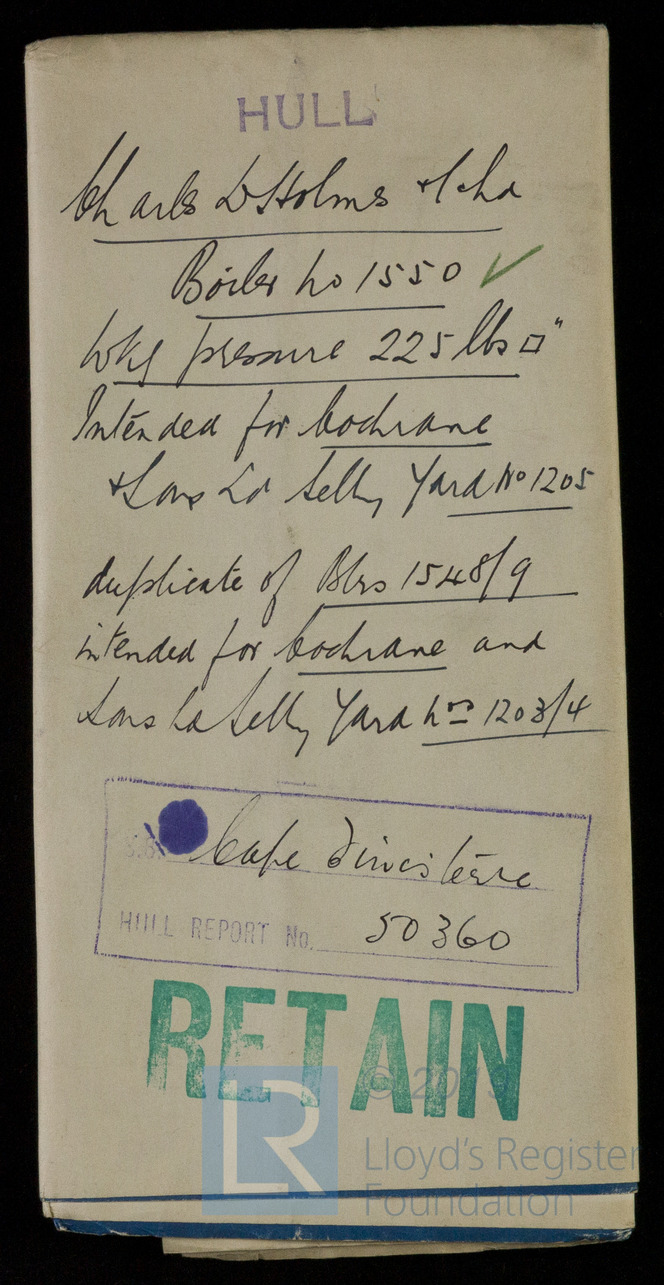 HULL
Charles D Holmes & Co Ld
Boiler No 1550 ✓
Wkg pressure 225 lbs □"
Intended for Cochrane
& Sons Ld Selby Yard No 1205
duplicate of Blrs 1548/9
intended for Cochrane and
Sons Ld Selby Yard Nos 1203/4
Cape Finisterre
HULL REPORT No. 50360
RETAIN
LR
© 20
Lloyd's Register
Foundation